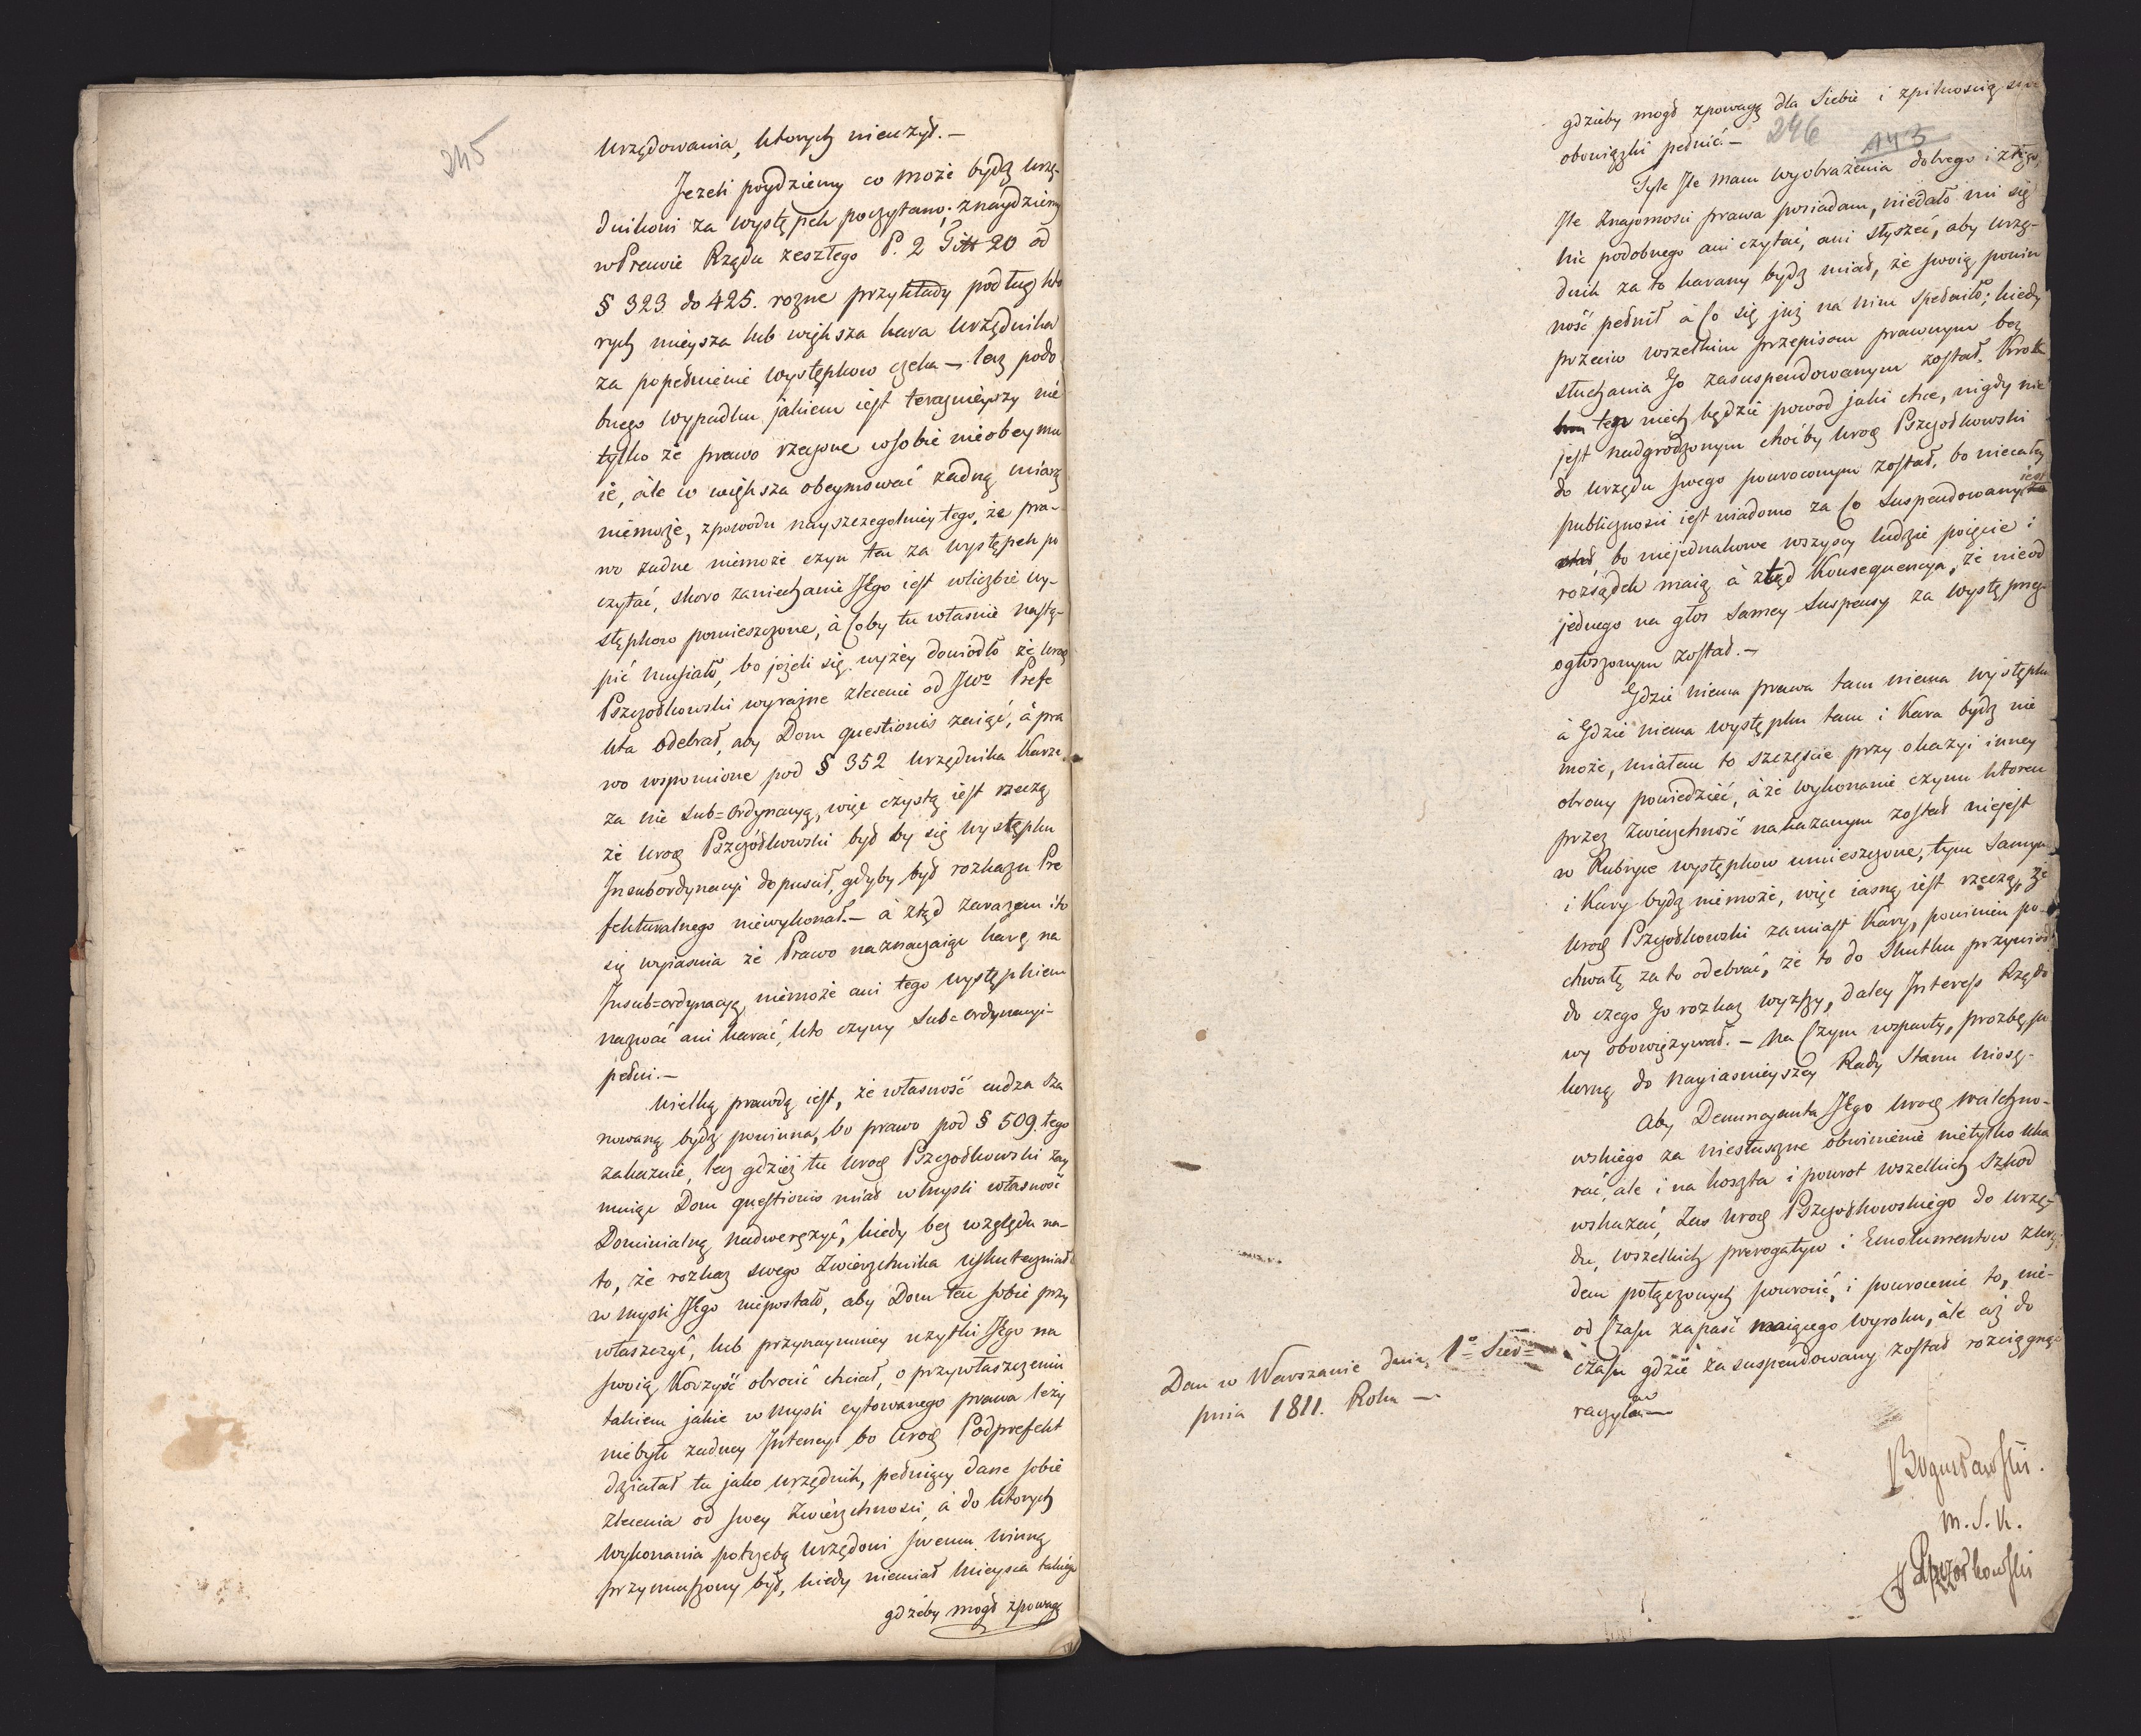 245
Urzędowania, ktorych nieużył. —
Jeżeli poydziemy co może bydź urzę-
dnikowi za występek poczytano; znaydziemy
w Prawie Rządu zeszłego P. 2 Titt 20 od
§ 323 do 425. rozne przykłady podług kto
rych mieysza lub większa kara Urzędnika
za popełnienie występkow czeka — lecz podo
bnego wypadku jakiem iest teraznieyszy nie
tylko że prawo rzeczone w sobie nieobeymu
ie, ale co większa obeymować żadną miarą
niemoże, zpowodu nayszczegolniey tego, że pra-
wo żadne niemoże czyn ten za występek po
czytać, skoro zaniechanie JEgo iest wliczbie wy-
stępkow pomieszczone, à Coby tu własnie nastą-
pić musiało, bo jeżeli się wyżey dowiodło że Uro̅
Pszczołkowski wyraźne zlecenie od JWo Prefe
kta odebrał, aby Dom questionis zaiąć, à pra
wo wspomione pod § 352 Urzędnika karze
za nie Sub=ordynacyą, więc czystą iest rzeczą
że Uro̅ Pszczółkowski był by się występku
Insubordynacyi dopuscił, gdyby był rozkazu Pre
fekturalnego niewykonał. — à ztąd zarazem i to
się wyiasnia że Prawo naznaczaiąc karę na
Insub=ordynacyą, niemoże ani tego występkiem
nazwać ani karać, kto czyny Sub=ordynacyi-
pełni. —
Wielką prawdą iest, że własność cudza sza
nowaną bydź powinna, bo prawo pod § 509. tego
zakazuie, lecz gdzież tu Uro̅ Pszczołkowski zay
muiąc Dom questionis miał w mysli własność
Dominialną nadwerężyć, kiedy bez względu na-
to, że rozkaz swego Zwierzchnika uskuteczniał
w mysli JEgo niepostało, aby Dom ten sobie przy
właszczyć, lub przynaymniey użytki JEgo na
swoią Korzyść obrocić chciał, o przywłaszczeniu
takiem jakie w mysli cytowanego prawa leży
niebyło żadney Intencyi bo Uro̅ Podprefekt
działał tu jako urzędnik, pełniący dane sobie
zlecenia od swey Zwierzchnosci, à do ktorych
wykonania potrzebą Urzędowi swemu winną
przymuszony był, kiedy niemiał mieysca takiego
gdzieby mogł zpowagą
gdzieby mogł zpowagą dla Siebie i zpilnoscią swe
obowiązki pełnić. —
246
143
Tyle Ile mam wyobrażenia dobrego i złego,
Ile Znajomosci prawa posiadam, niedało mi się
nic podobnego ani czytać, ani słyszeć, aby urzę-
dnik za to karany bydź miał, że swoią powin
ność pełnił à Co się już na nim spełniło; kiedy
przeciw wszelkim przepisom prawnym bez
słuchania Go zasuspendowanym został. Krok
tego niech będzie powod jaki chce, nigdy nie
jest nadgrodzonym choćby Uro̅ Pszczołkowski
do urzędu swego powroconym został, bo niecałey
publicznosci iest wiadomo za Co Suspendowany iest
bo niejednakowe wszyscy ludzie poięcie i
rozsądek maią à ztąd Konsequencya, że nieod
jednego na głos samey Suspensy za występneg
ogłoszonym został. —
Gdzie niema prawa tam niema występku
à Gdzie niema występku tam i Kara bydź nie
może, miałem to szczęście przy okazyi inney
obrony powiedzieć, à że wykonanie czynu ktoren
przez Zwierzchność nakazanym został niejest
w Rubryce występkow umieszczone, tym samym
i Kary bydź niemoże, więc iasną iest rzeczą, że
Uro̅ Pszczołkowski zamiast Kary, powinien po-
chwałę za to odebrać, że to do Skutku przywiodł
do czego Go rozkaz wyższy, daley Interess Rządo
wy obowiązywał. — Na Czym wsparty, prozbę po
korną do Nayiasnieyszey Rady Stanu wnoszę-
Aby Denuncyanta JEgo Uro̅ Walichno-
wskiego za niesłuszne obwinienie nietylko uka
rać, ale i na koszta i powrot wszelkich Szkod
wskazać, Zas Uro̅ Pszczołkowskiego do Urzę-
du, wszelkich prerogatyw i Emolumentow z Urzę
dem połączonych powrocić, i powrocenie to, nie-
od Czasu zapaść maiącego wyroku, ale aż do
czasu gdzie zasuspendowany został rozciągnąć
raczyła —
Dan w Warszawie dnia 1o Sier=
pnia 1811. Roku —
Bogusławski.
M.S.K.
J Pszczołkowski